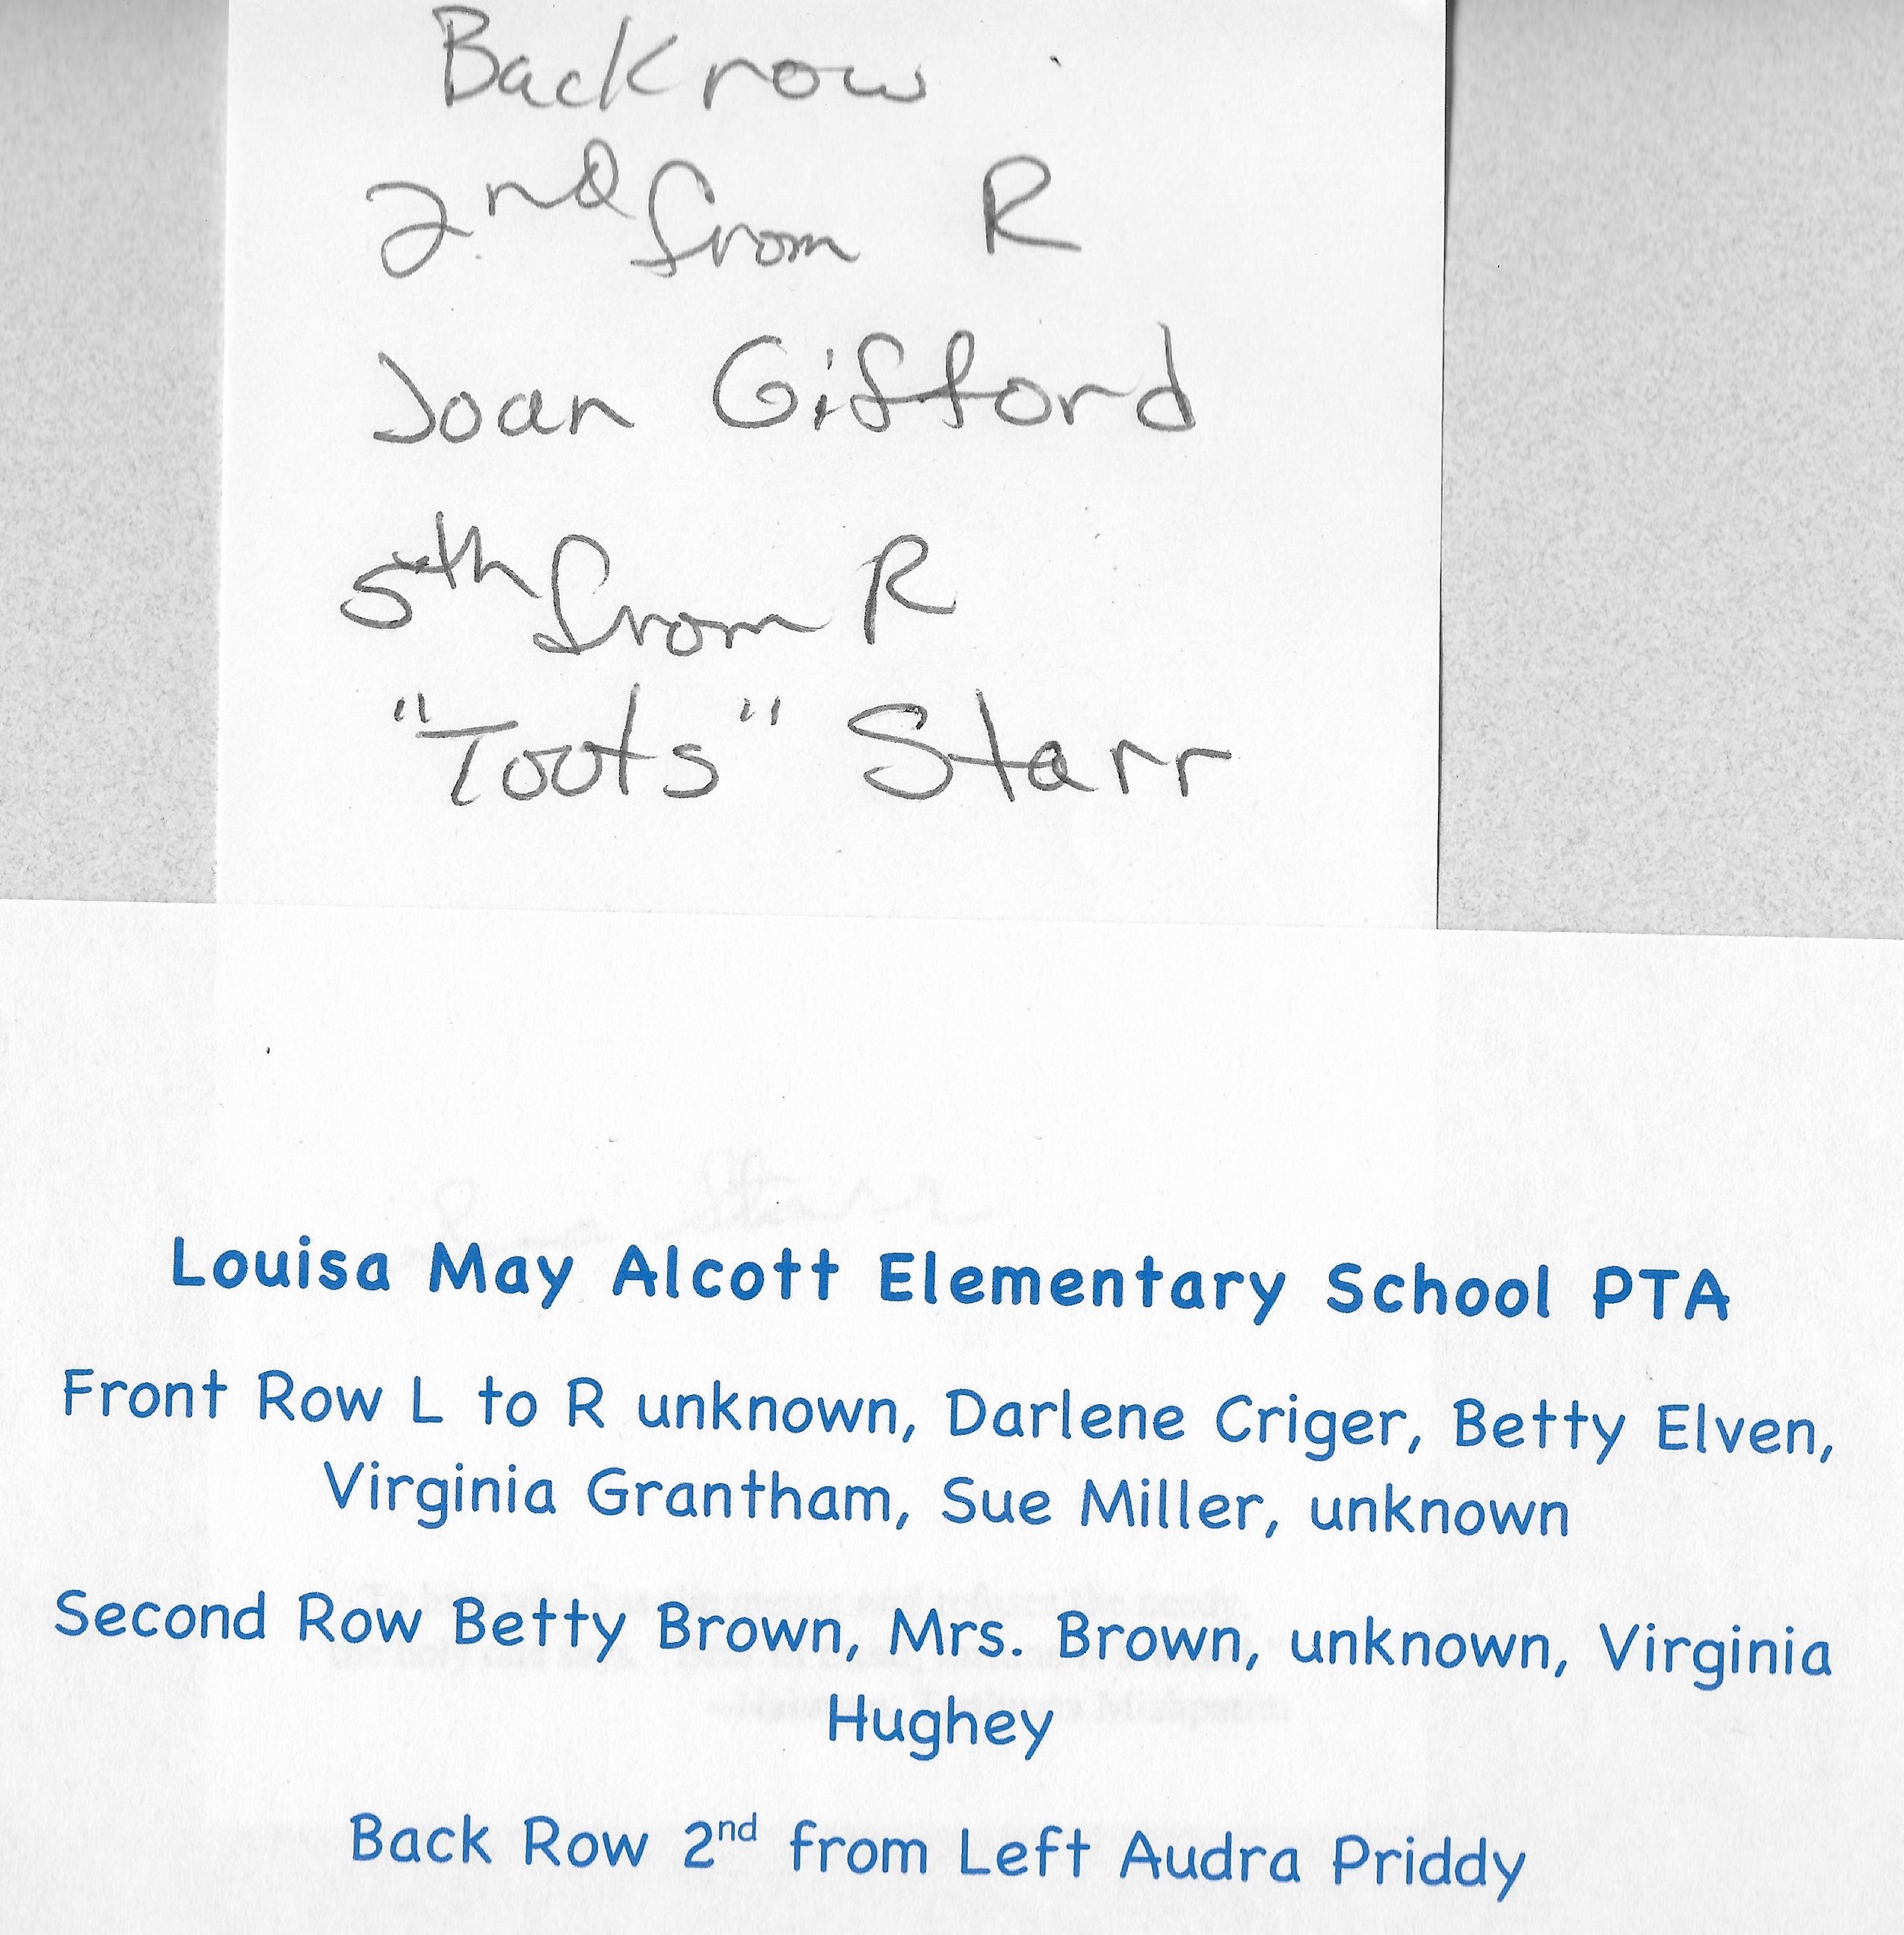 Back row
2nd from R
Joan Gifford
5th from R
"Toots" Starr
Louisa May Alcott Elementary School PTA
Front Row L to R unknown, Darlene Criger, Betty Elven,
Virginia Grantham, Sue Miller, unknown
Second Row Betty Brown, Mrs. Brown, unknown, Virginia
Hughey
Back Row 2nd from Left Audra Priddy